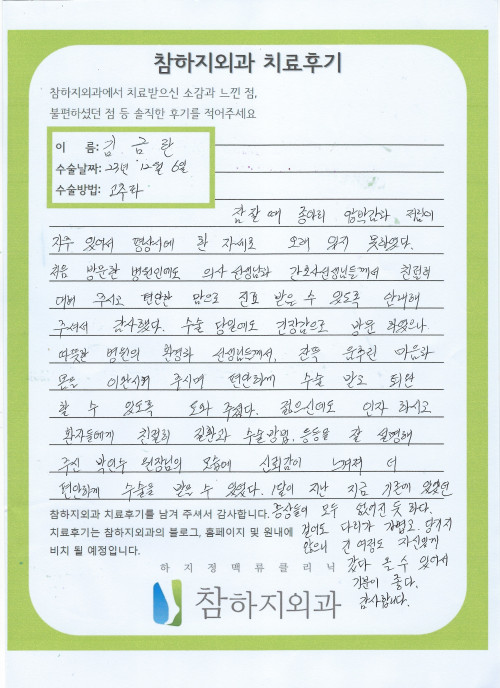 참하지외과 치료후기
참하지외과에서 치료받으신 소감과 느낀 점,
불편하셨던 점 등 솔직한 후기를 적어주세요
이 름: 김 금 란
수술날짜: 23년 12월 6일
수술방법: 고주파
잠잘 때 종아리 압박감과 저림이
자주 있어서 평상시에 한 자세로 오래 있지 못하였다.
처음 방문한 병원인데도 의사 선생님과 간호사선생님들께서 친절히
대해 주시고 편안한 맘으로 진료 받을 수 있도록 안내해
주셔서 감사했다. 수술 당일에도 긴장감으로 방문 하였으나
따뜻한 병원의 환경과 선생님들께서, 잔뜩 움추린 마음과
몸을 이완시켜 주시며 편안하게 수술 받고 퇴원
할 수 있도록 도와 주셨다. 젊으신데도 인자 하시고
환자들에게 친절히 질환과 수술방법, 등등을 잘 설명해
주신 박인수 원장님의 모습에 신뢰감이 느껴져 더
편안하게 수술을 받을 수 있었다. 1달이 지난 지금 기존에 있었던
참하지외과 치료후기를 남겨 주셔서 감사합니다. 증상들이 모두 없어진 듯 하다.
치료후기는 참하지외과의 블로그, 홈페이지 및 원내에 걸어도 다리가 가볍고. 당기지
비치 될 예정입니다. 않으니 긴 여정도 자신있게
하 지 정 맥 류 클 리 닉 갔다 올 수 있어서
기분이 좋다.
참하지외과 감사합니다.